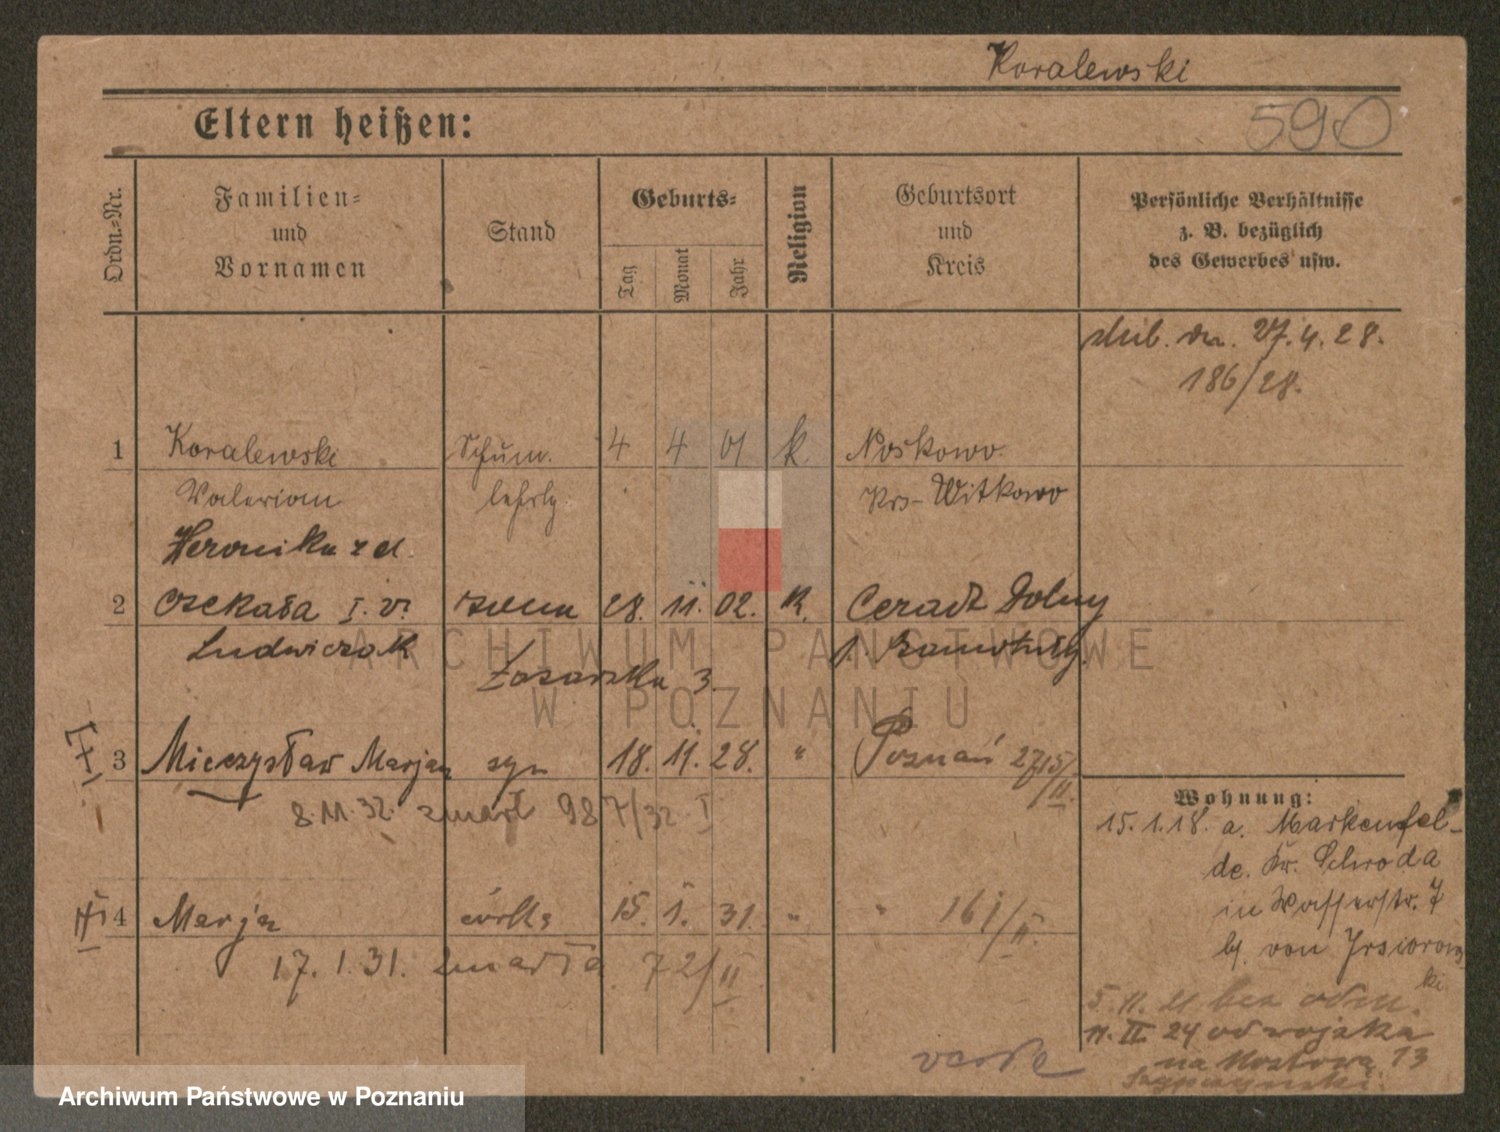 Koralewski
Eltern heißen:
590
Ordn.-Nr.
Familien-
und
Vornamen
Stand
Geburts-
Tag
Monat
Jahr
Religion
Geburtsort
und
Kreis
Persönliche Verhältnisse
z. B. bezüglich
des Gewerbes usw.
27.4.28.
186/28.
1 Koralewski Schum. 4 4 01 k. Noskowo
Valerian lehrlg. Krs- Witkowo
Weronika z d.
2 I. v. żona 28. 11. 02. K. Ceradz Dolny
Ludwiczak p. Szamotuły
3.
3 Mieczysław Marjan syn 18. 11. 28. " Poznań
8.11.32. zmarł 987/32 I
4 Marja córka 15. 1. 31. " " 161/II.
17. 1. 31. zmarła 72/II
Wohnung:
15.1.18. a. Markenfel-
de. Kr. Schroda
in Wasserstr. 7
b/. von
ski
5.11.21 bez odm.
11. II. 24 od wojska
na Mostową 13
ARCHIWUM PAŃSTWOWE
W POZNANIU
Archiwum Państwowe w Poznaniu